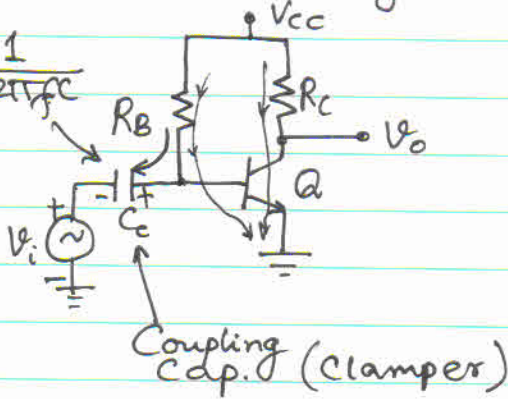 Vcc
1
2πfC
RB
Rc
Vo
Q
Vi
+
-
+
Cc
Coupling
Cap. (Clamper)